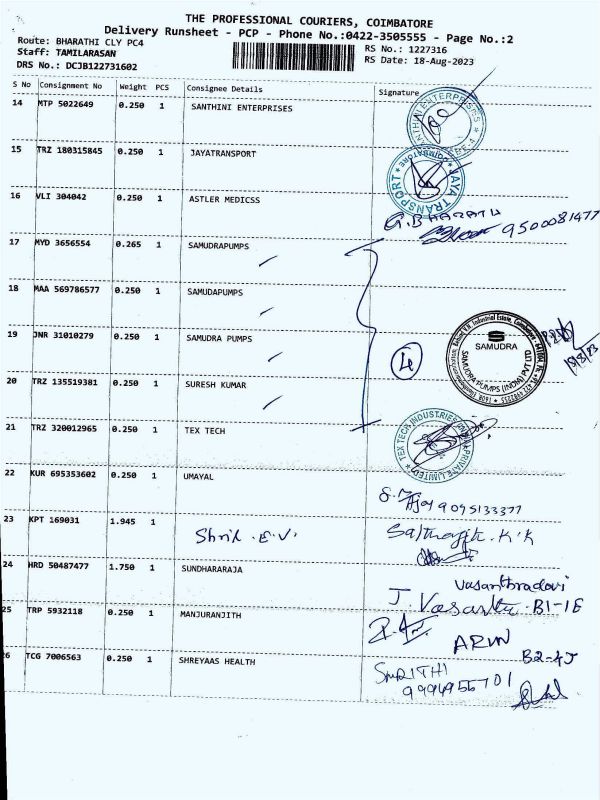 THE PROFESSIONAL COURIERS, COIMBATORE
Delivery Runsheet - PCP - Phone No.:0422-3505555 - Page No.:2
Route: BHARATHI CLY PC4
RS No.: 1227316
Staff: TAMILARASAN
RS Date: 18-Aug-2023
DRS No.: DCJB122731602
S No Consignment No Weight PCS Consignee Details Signature
14 MTP 5022649 0.250 1 SANTHINI ENTERPRISES
15 TRZ 180315845 0.250 1 JAYATRANSPORT
JAYA TRANSPORT
16 VLI 304042 0.250 1 ASTLER MEDICSS
G.BHARATH
9500081477
17 MYD 3656554 0.265 1 SAMUDRAPUMPS
18 MAA 569786577 0.250 1 SAMUDAPUMPS
19 JNR 31010279 0.250 1 SAMUDRA PUMPS
SAMUDRA
SAMUDRA PUMPS (INDIA) PVT LTD
4
20 TRZ 135519381 0.250 1 SURESH KUMAR
21 TRZ 320012965 0.250 1 TEX TECH
TEX TECH INDUSTRIES (INDIA) PRIVATE LIMITED
22 KUR 695353602 0.250 1 UMAYAL
9095133377
23 KPT 169031 1.945 1
24 HRD 50487477 1.750 1 SUNDHARARAJA
J. Vasantha B1-1E
25 TRP 5932118 0.250 1 MANJURANJITH
ARUN
B2-4J
26 TCG 7006563 0.250 1 SHREYAAS HEALTH
SMRITHI